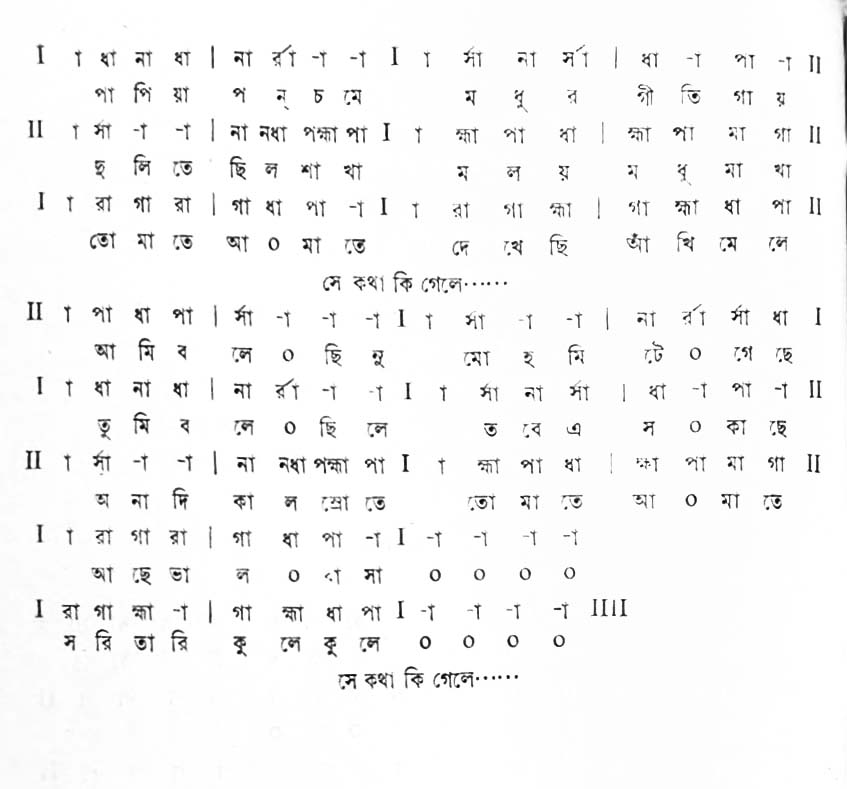 I া ধা না ধা | না র্রা -া -া I া র্সা না র্সা | ধা -া পা -া II
পা পি য়া প ন্ চ মে ম ধু র গী তি গা য়
II া র্সা -া -া | না নধা পহ্মা পা I া হ্মা পা ধা | হ্মা পা মা গা II
ছ লি তে ছি ল শা খা ম ল য় ম ধু মা খা
I া রা গা রা | গা ধা পা -া I া রা গা হ্মা | গা হ্মা ধা পা II
তো মা তে আ ০ মা তে দে খে ছি আঁ খি মে লে
সে কথা কি গেলে······
II া পা ধা পা | র্সা -া -া -া I া র্সা -া -া | না র্রা র্সা ধা I
আ মি ব লে ০ ছি নু মো হ মি টে ০ গে ছে
I া ধা না ধা | না র্রা -া -া I া র্সা না র্সা | ধা -া পা -া II
তু মি ব লে ০ ছি লে ত বে এ স ০ কা ছে
II া র্সা -া -া | না নধা পহ্মা পা I া হ্মা পা ধা | হ্মা পা মা গা II
অ না দি কা ল স্রো তে তো মা তে আ ০ মা তে
I া রা গা রা | গা ধা পা -া I -া -া -া -া
আ ছে ভা ল ০ বা সা ০ ০ ০ ০
I রা গা হ্মা -া | গা হ্মা ধা পা I -া -া -া -া IIII
স রি তা রি কু লে কু লে ০ ০ ০ ০
সে কথা কি গেলে······